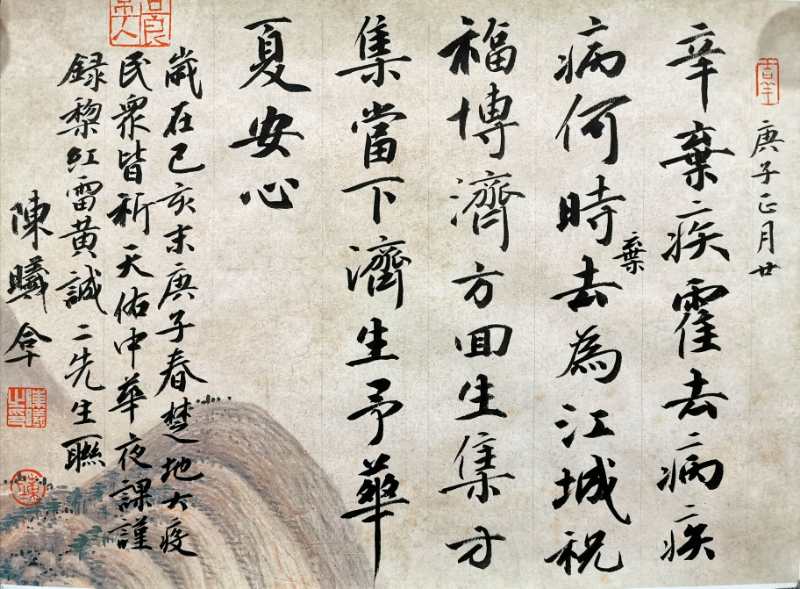 庚子正月廿
辛棄疾霍去病疾
病何時棄去為江城祝
福博濟方回生集方
集當下濟生予華
夏安心
歲在己亥末庚子春楚地大疫
民衆皆祈天佑中華夜課謹
録黎紅雷黃誠二先生聯
陳曦